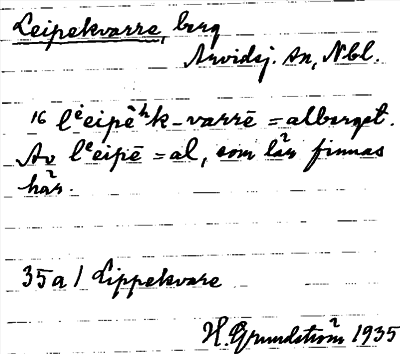 Leipekvarre, berg
Arvidsj. sn, Nbl.
16 lᵉeipēʰk-varrē = alberget.
Av lᵉeipē = al, som lär finnas
här.
35a / Lippekvare
H. Grundström 1935